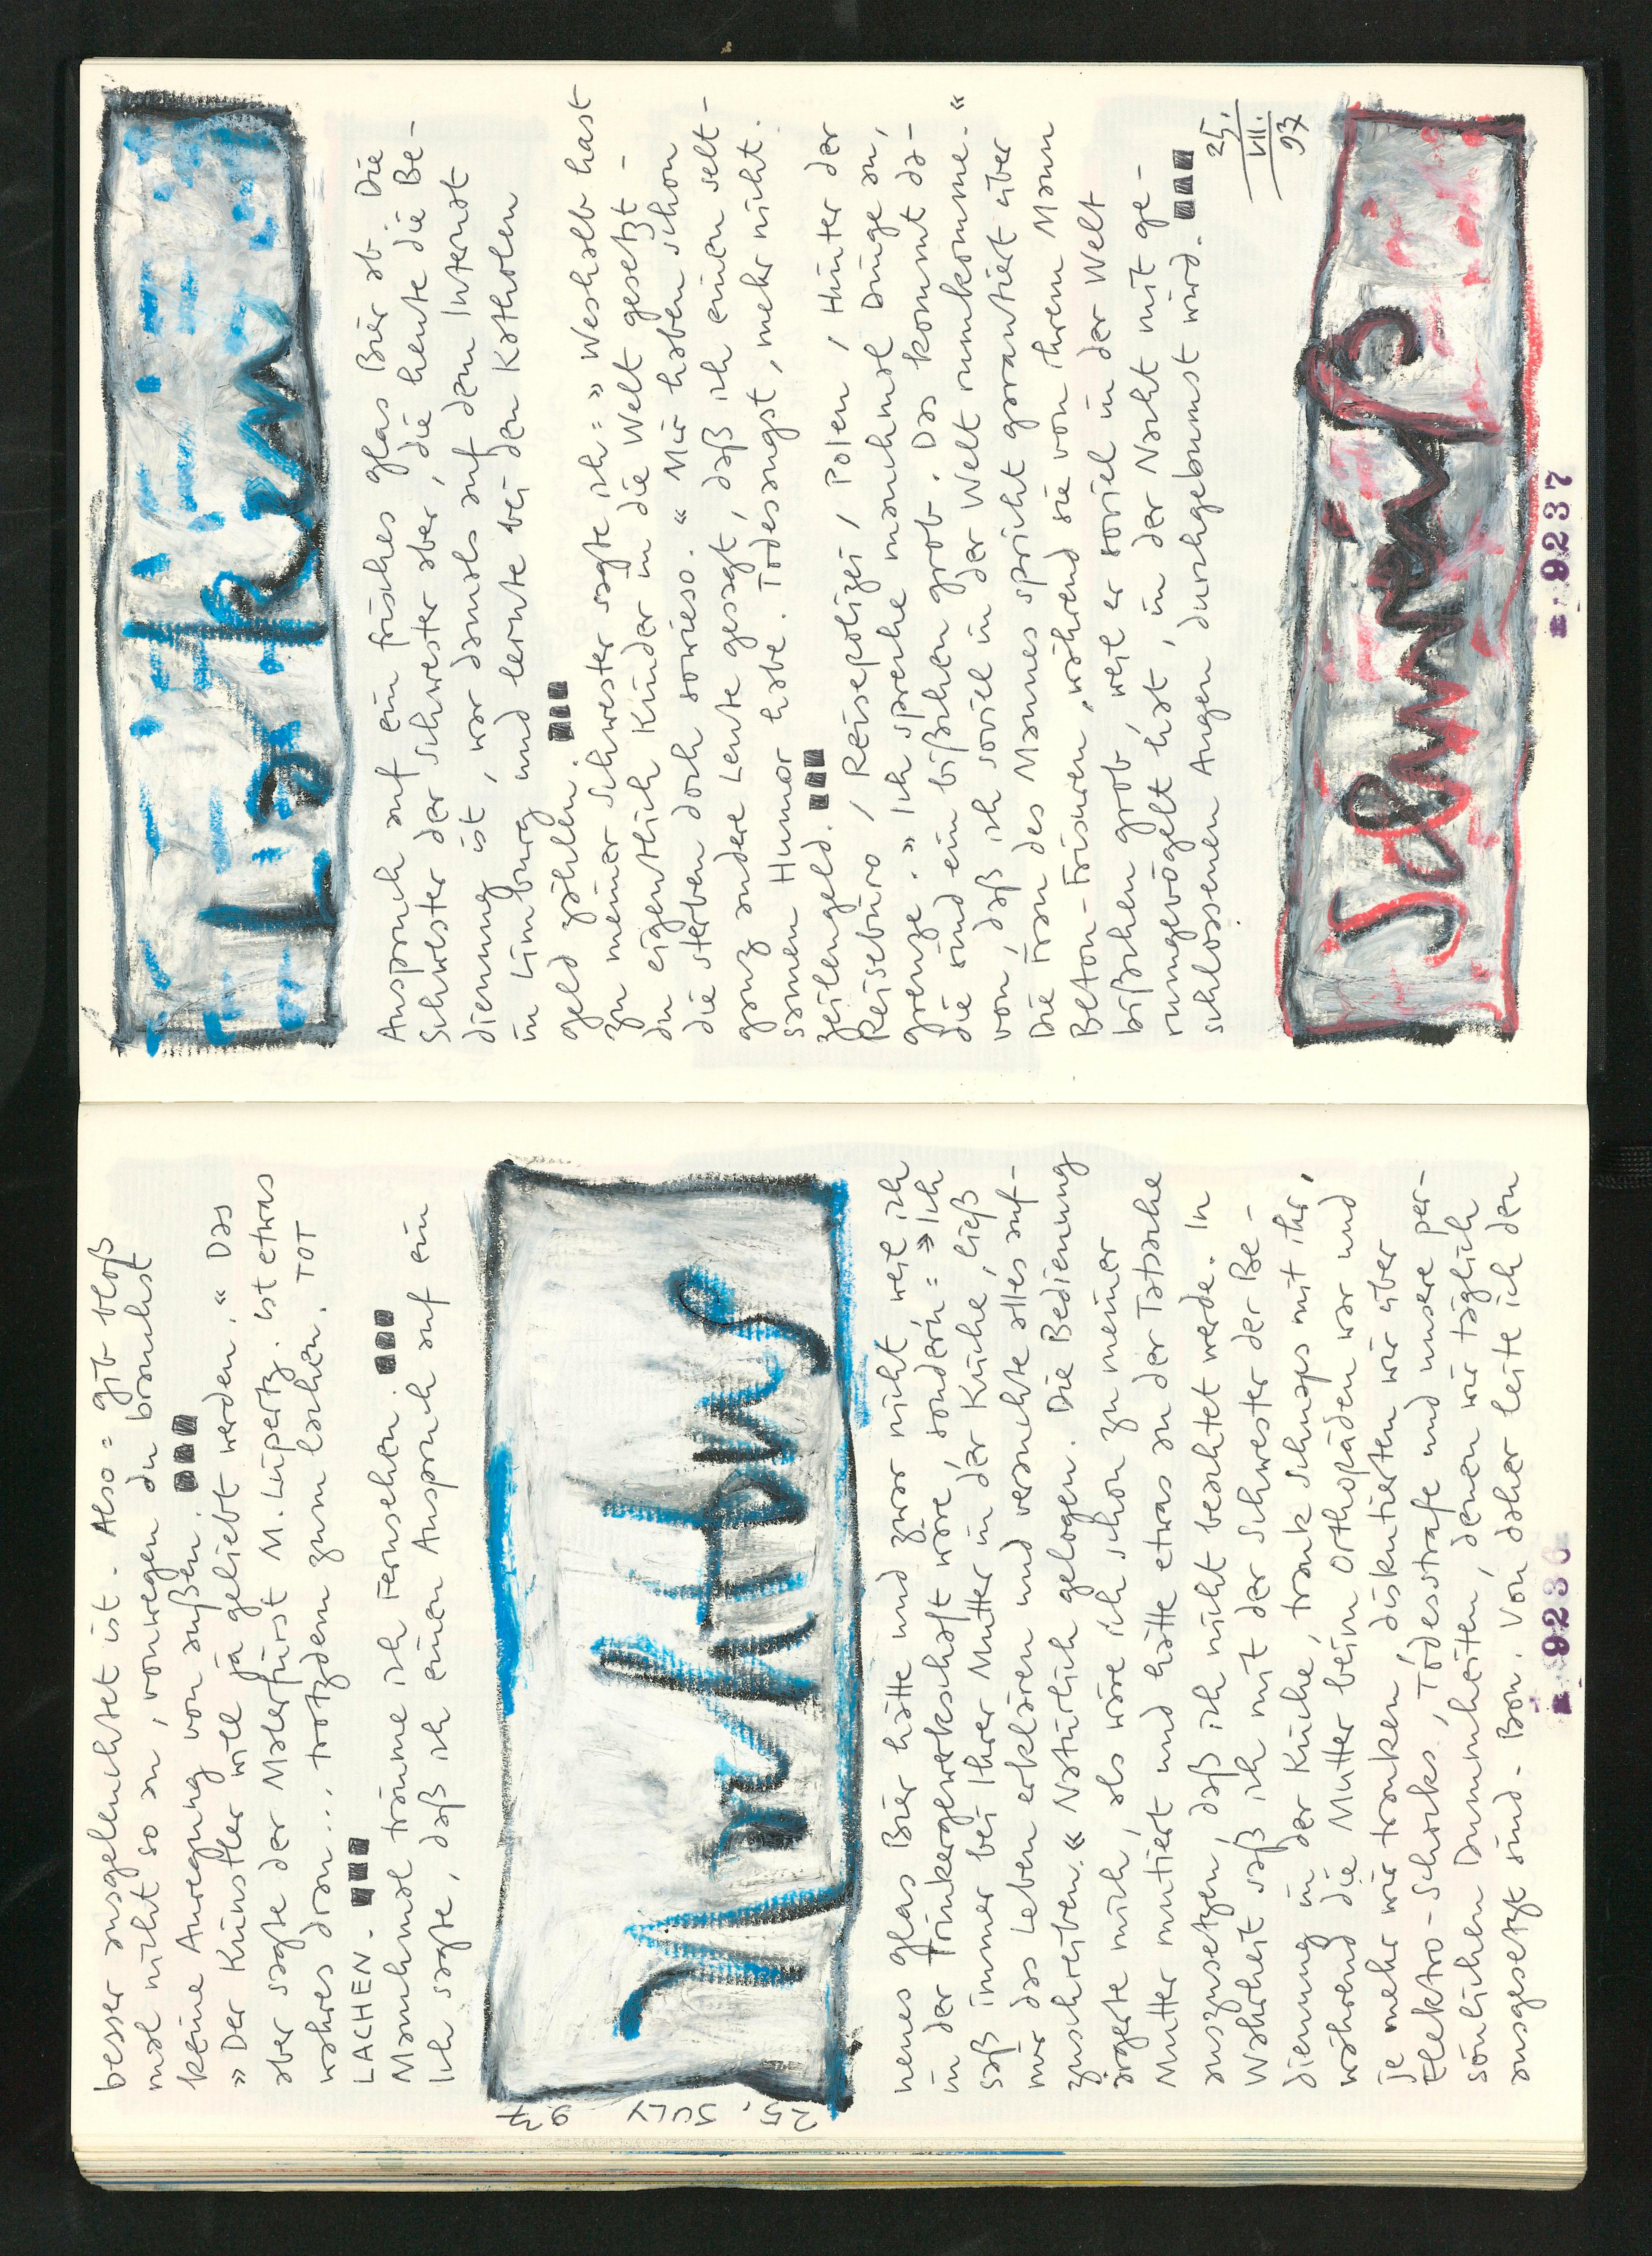 besser ausgeleuchtet ist. Also = gib bloß
mal nicht so an, vonwegen du brauchst
keine Anregung von außen.
» Der Künstler will ja geliebt werden. « Das
aber sagte der Malerfürst M. Lüpertz. Ist etwas
wahres dran... trotzdem zum lachen. TOT
LACHEN.
Manchmal träume ich Fernsehen.
Ich sagte, daß ich einen Anspruch auf ein
25. JULY 97
neues Glas Bier hätte und zwar nicht weil ich
in der Trinkergewerkschaft wäre, sondern = » Ich
saß immer bei Ihrer Mutter in der Küche, ließ
mir das Leben erklären und versuchte alles auf-
zuschreiben. « Natürlich gelogen. Die Bedienung
ärgerte mich, als wäre ich schon zu meiner
Mutter mutiert und hätte etwas an der Tatsache
auszusetzen, daß ich nicht beachtet werde. In
Wahrheit saß ich mit der Schwester der Be-
dienung in der Küche, trank Schnaps mit ihr,
während die Mutter beim Orthopäden war und
je mehr wir tranken, diskutierten wir über
Elektro-Schocks, Todesstrafe und unsere per-
sönlichen Dummheiten, denen wir täglich
ausgesetzt sind. Bon. Von daher leite ich den
9236
Anspruch auf ein frisches Glas Bier ab. Die
Schwester der Schwester aber, die heute die Be-
dienung ist, war damals auf dem Internat
in Limburg und lernte bei den Katholen
Geld zählen.
Zu meiner Schwester sagte ich = » Weshalb hast
du eigentlich Kinder in die Welt gesetzt -
die sterben doch sowieso. « Mir haben schon
ganz andere Leute gesagt, daß ich einen selt-
samen Humor habe. Todesangst, mehr nicht.
Zeilengeld.
Reisebüro / Reisepolizei / Polen / Hinter der
Grenze. » Ich spreche manchmal Dinge an,
die sind ein bißchen grob. Das kommt da-
von, daß ich soviel in der Welt rumkomme. «
Die Frau des Mannes spricht garantiert über
Beton-Frisuren, während sie von ihrem Mann
bißchen grob, weil er soviel in der Welt
rumgevögelt hat, in der Nacht mit ge-
schlossenen Augen durchgebumst wird.
25.
VII.
97
9237